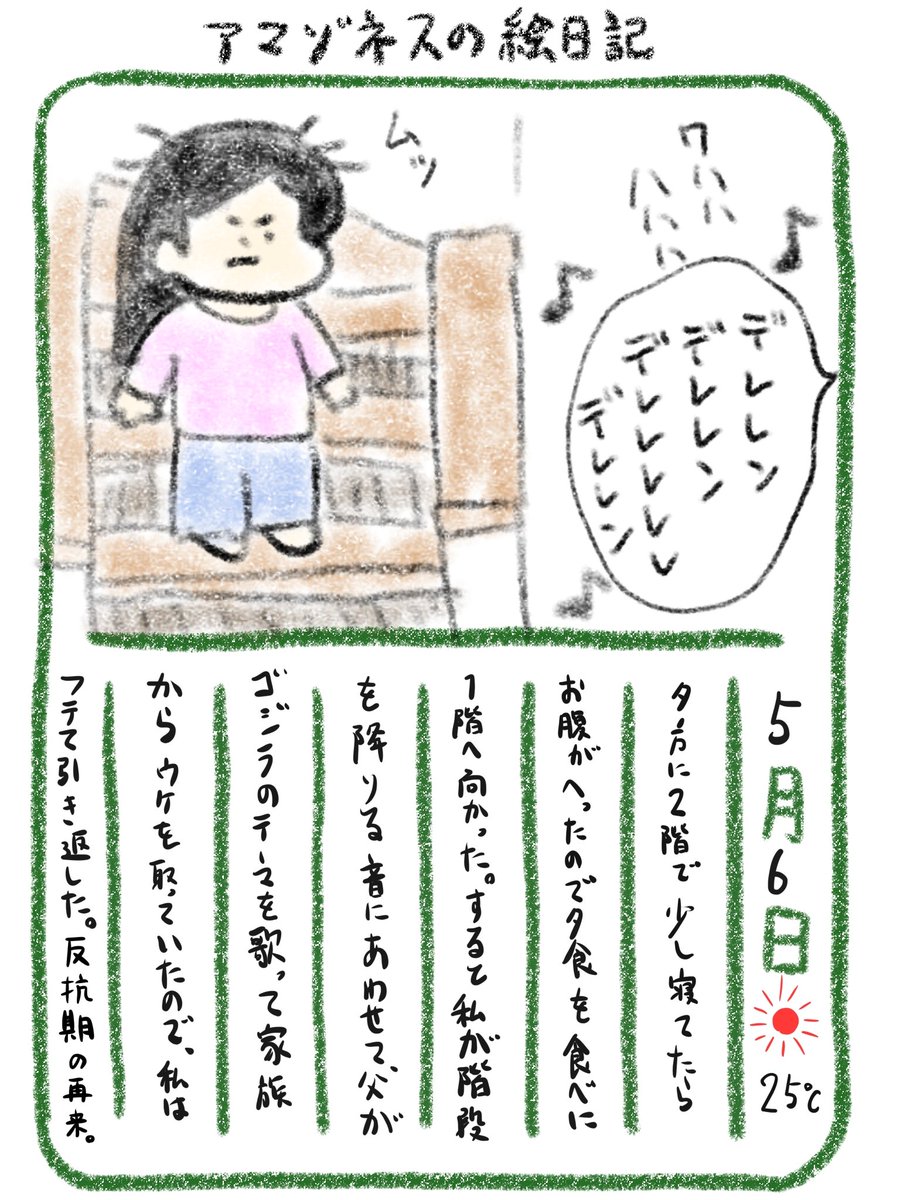 アマゾネスの絵日記
ワハハ
ハハハ
ムッ
デレレン
デレレン
デレレレレレ
デレレン
5月6日
25℃
夕方に2階で少し寝てたら
お腹がへったので夕食を食べに
1階へ向かった。すると私が階段
を降りる音にあわせて、父が
ゴジラのテーマを歌って家族
からウケを取っていたので、私は
フテて引き返した。反抗期の再来。